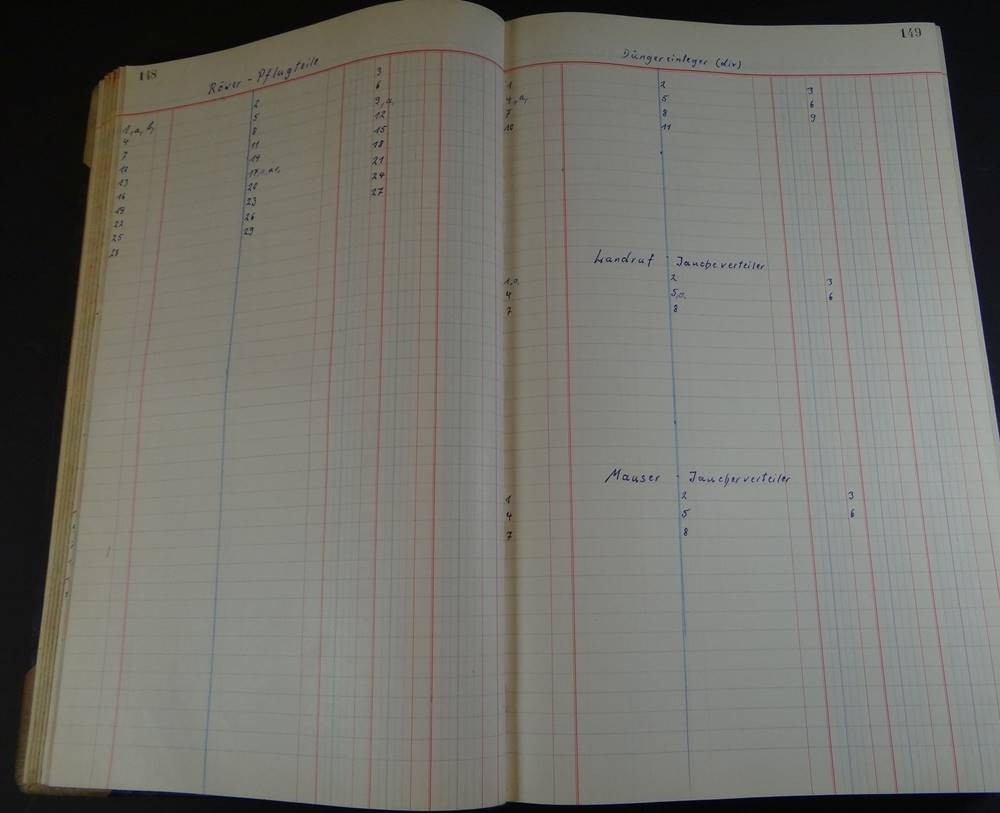 148
Röwer - Pflugteile
1, a, b, 2 3
4 5 6
7 8 9, a,
10 11 12
13 14 15
16 17, 18
19 20 21
22 23 24
25 26 27
28 29
149
Düngereinleger (div)
1 2 3
4, a, 5 6
7 8 9
10 11
Landruf - Jaucheverteiler
1, a, 2 3
4 5, a, 6
7 8
Mauser - Jaucherverteiler
1 2 3
4 5 6
7 8